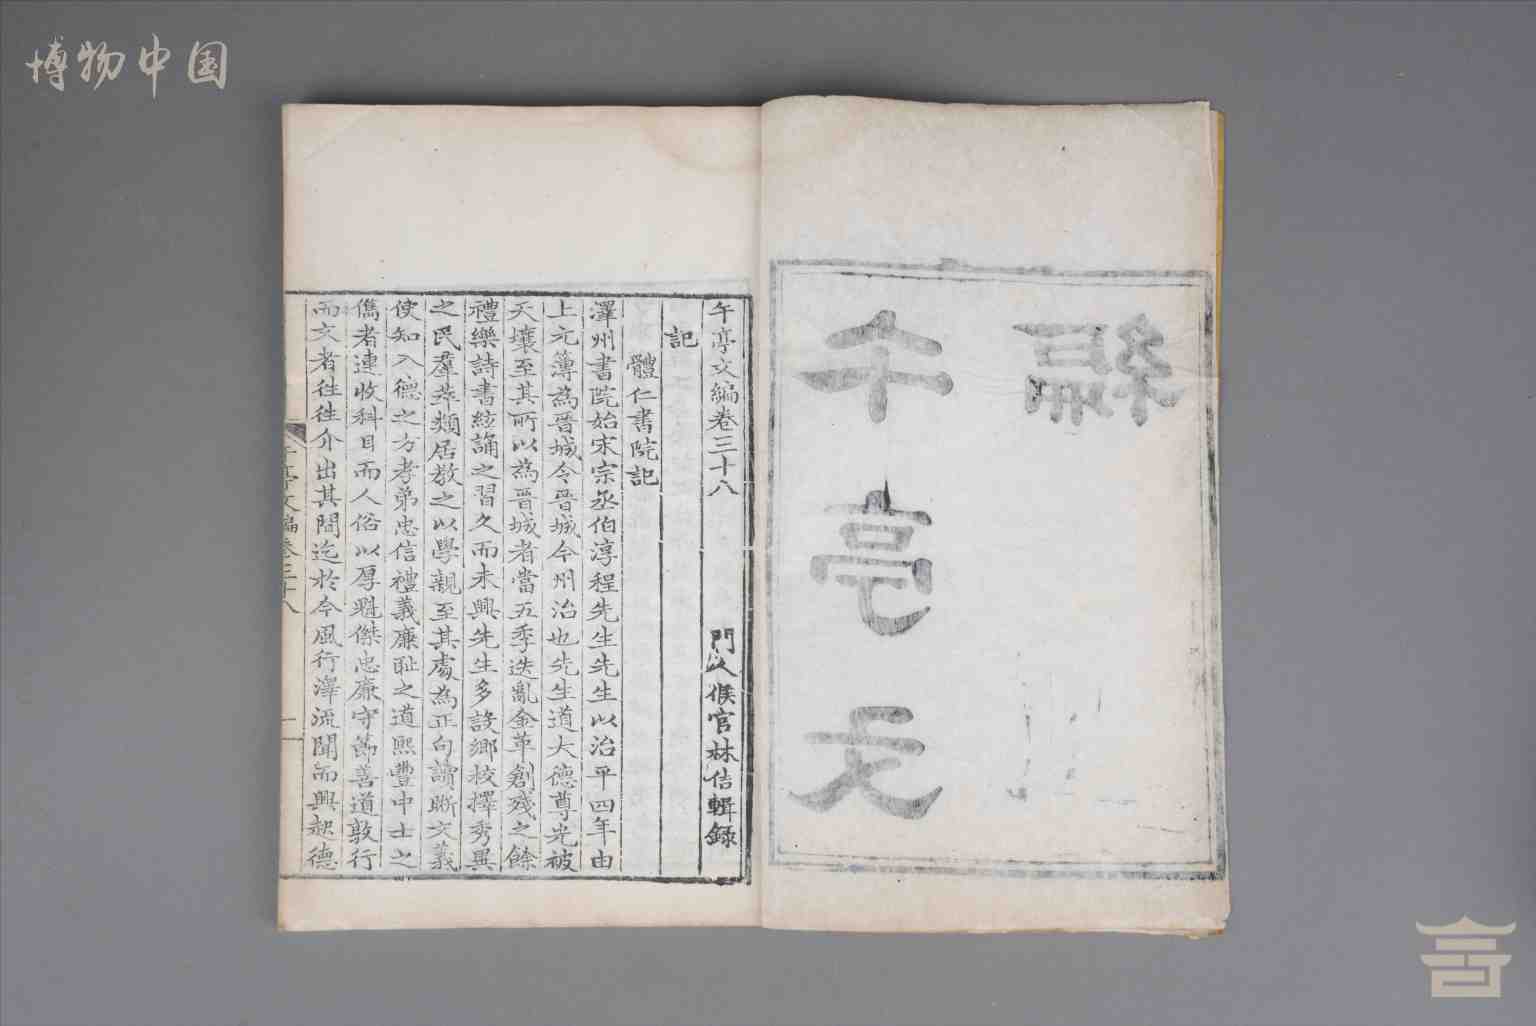 博物中国
午亭文
編
午亭文編卷三十八
門人候官林佶輯錄
記
體仁書院記
澤州書院始宋宗丞伯淳程先生先生以治平四年由
上元簿為晉城令晉城今州治也先生道大德尊光被
天壤至其所以為晉城者當五季迭亂金革創殘之餘
禮樂詩書絃誦之習久而未興先生多設鄉校擇秀異
之民羣萃類居教之以學親至其處為正句讀晣文義
使知入德之方孝弟忠信禮義廉耻之道熙豐中士之
儁者連收科目而人俗以厚魁傑忠廉守節善道敦行
而文者往往介出其間迄於今風行澤流聞而興起德
午亭文編卷三十八
一